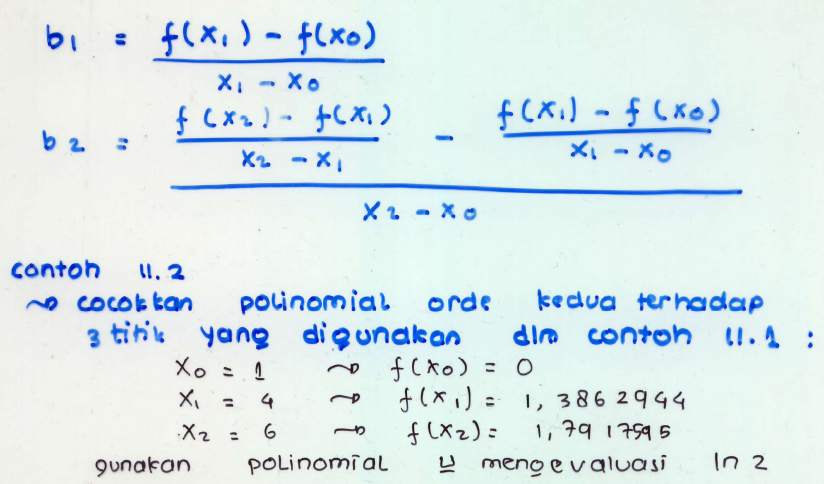 b1 = f(x1) - f(x0)
x1 - x0
b2 = f(x2) - f(x1) - f(x1) - f(x0)
x2 - x1 x1 - x0
x2 - x0
contoh 11.2
~> cocokkan polinomial orde kedua terhadap
3 titik yang digunakan dlm contoh 11.1 :
x0 = 1 ~> f(x0) = 0
x1 = 4 ~> f(x1) = 1,3862944
x2 = 6 ~> f(x2) = 1,7917595
gunakan polinomial u mengevaluasi ln 2